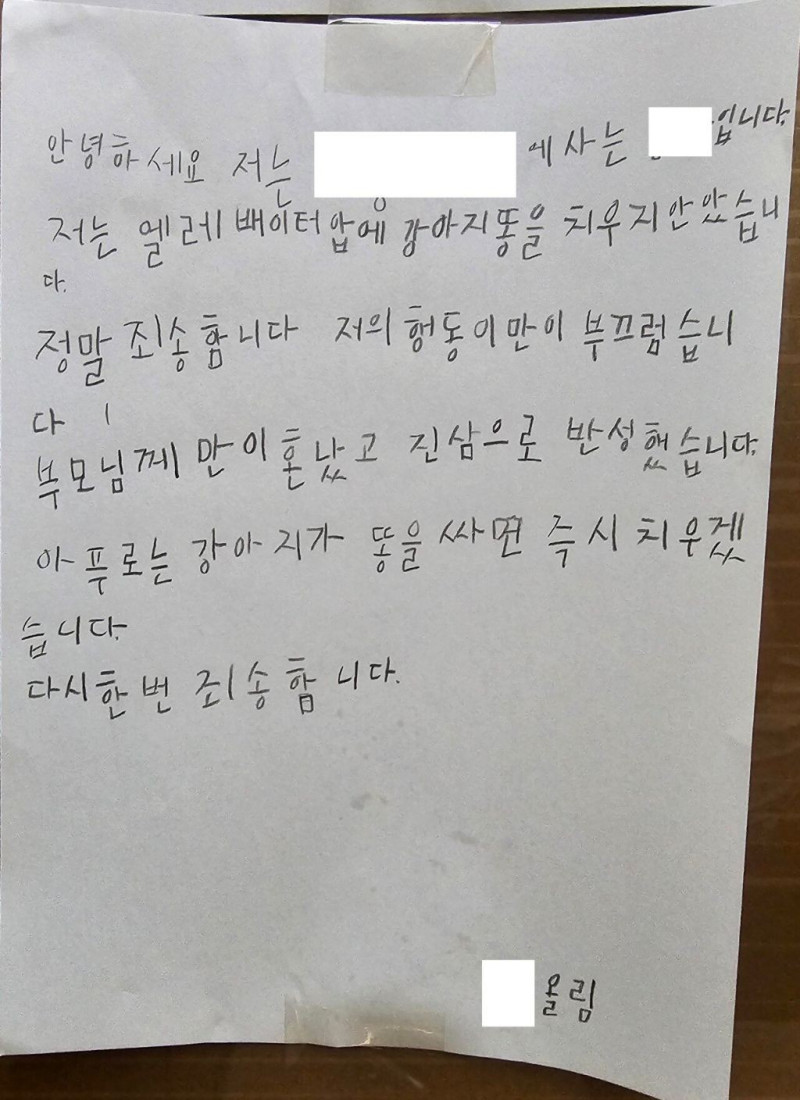 안녕하세요 저는 에사는 입니다.
저는 엘레배이터압에 강아지똥을 치우지안았습니
다.
정말 죄송함니다 저의 헝동이만이 부끄럼습니
다
부모님께 만이혼났고 진삼으로 반성했습니다.
아푸로는 강아지가 똥을싸면 즉시 치우겠
습니다.
다시한번 죄송함니다.
올림